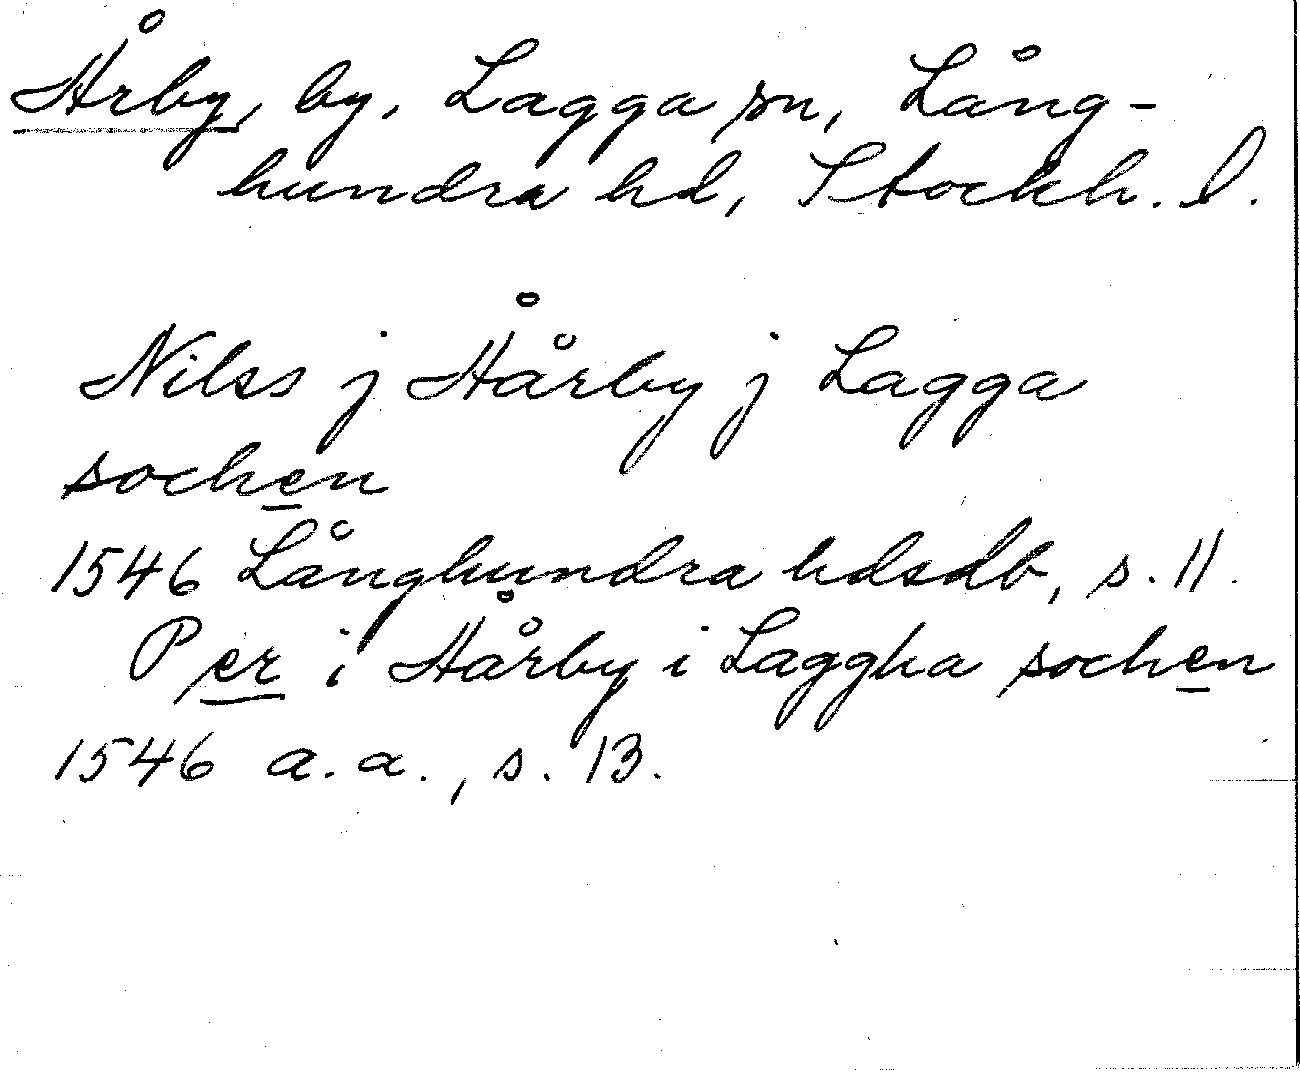 Årby, by, Lagga sn, Lång-
hundra hd, Stockh. l.
Nilss j Åårby j Lagga
sochen
1546 Långhundra hdsdb, s. 11.
Per i Åårby i Laggha sochen
1546 a.a., s. 13.